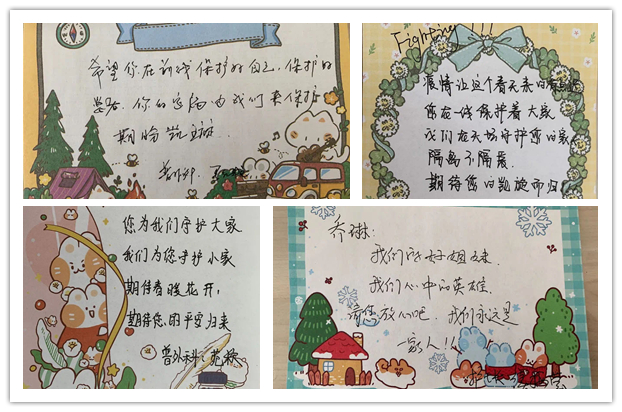 希望你在前线保护好自己，保护好
您的后方由我们来保护
期盼凯旋
Fighting!!!
疫情让这个春天来的有些迟
您在一线保护着大家
我们在后方守护您的家
隔离不隔爱
期待您的凯旋而归!
您为我们守护大家
我们为您守护小家
期待春暖花开,
期待您的平安归来
普外科:
乔琳:
我们的好姐妹
我们心中的英雄
请您放心吧,我们永远是
一家人!!